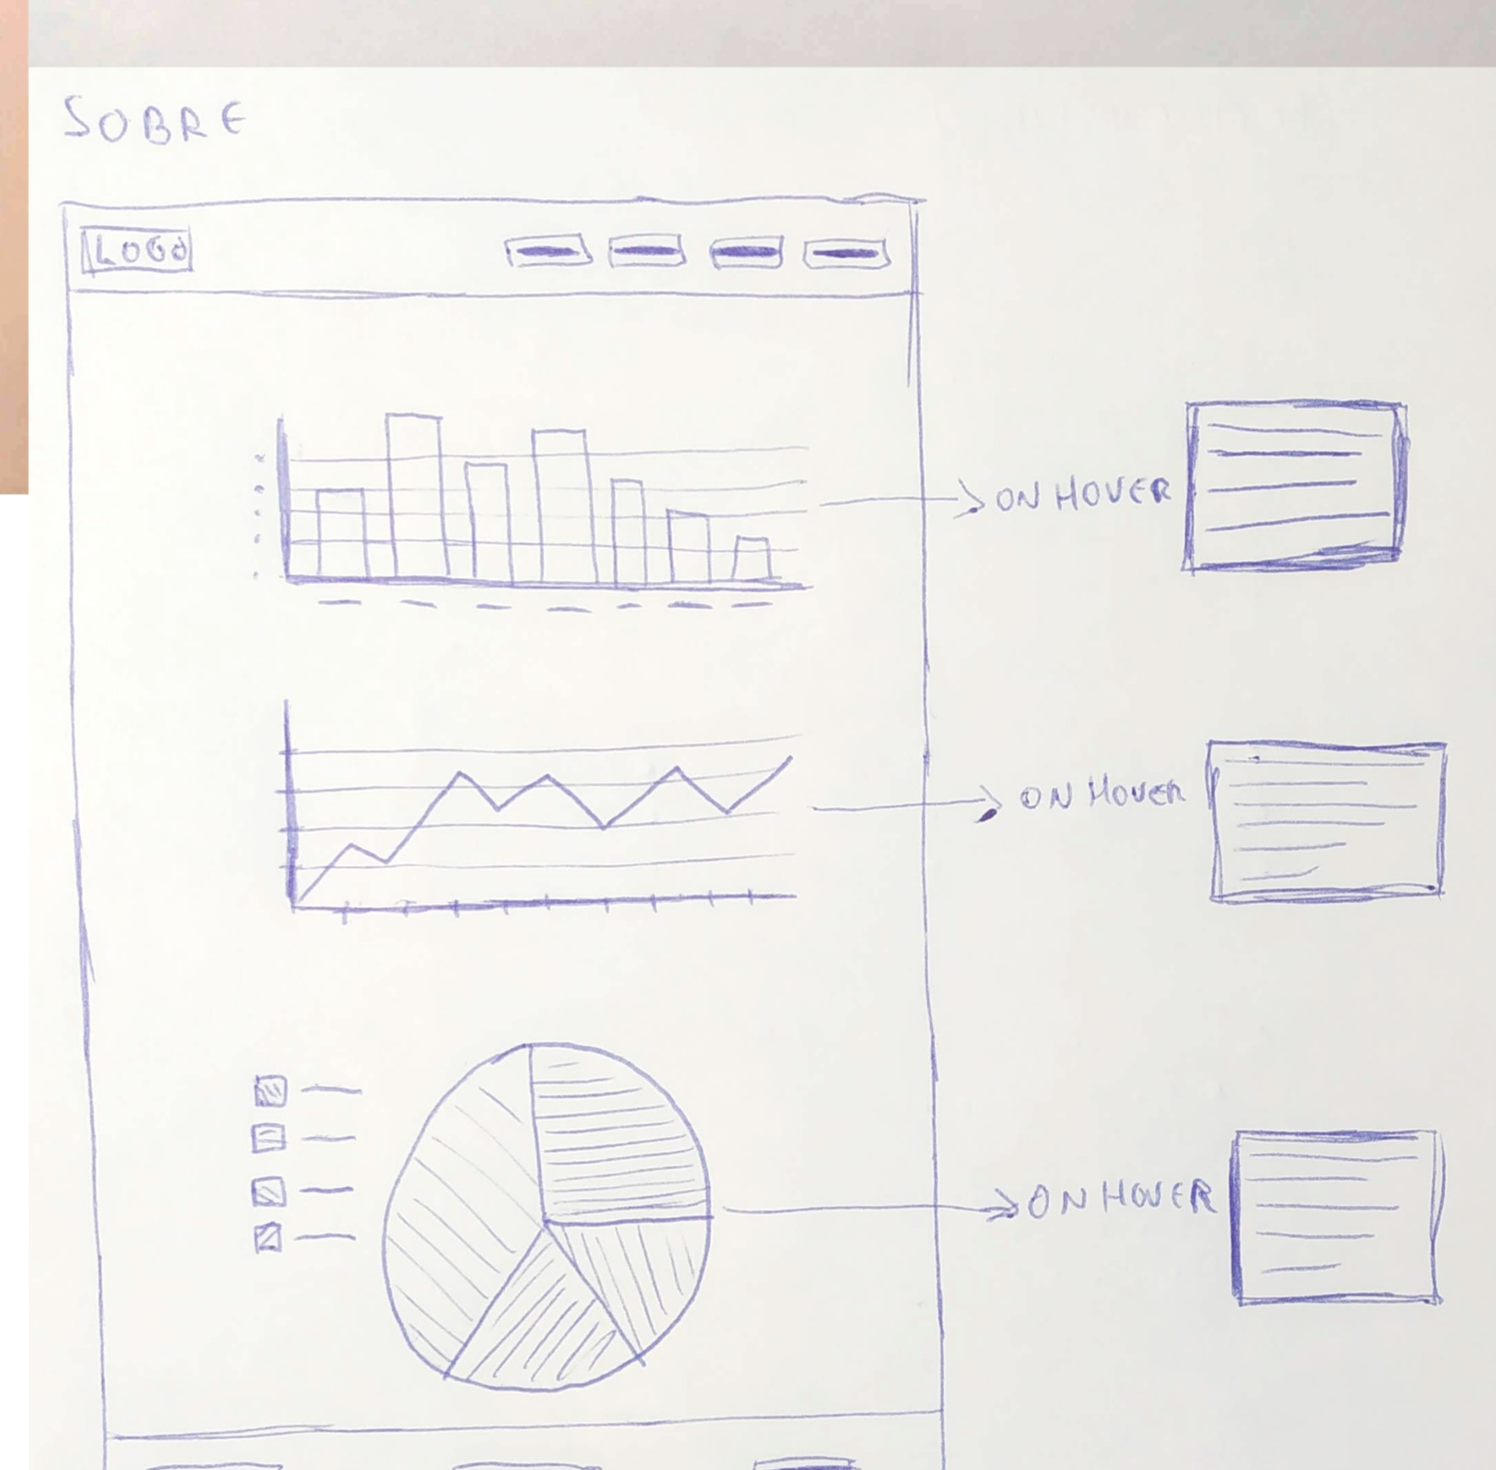 SOBRE
LOGO
ON HOVER
ON HOVER
ON HOVER